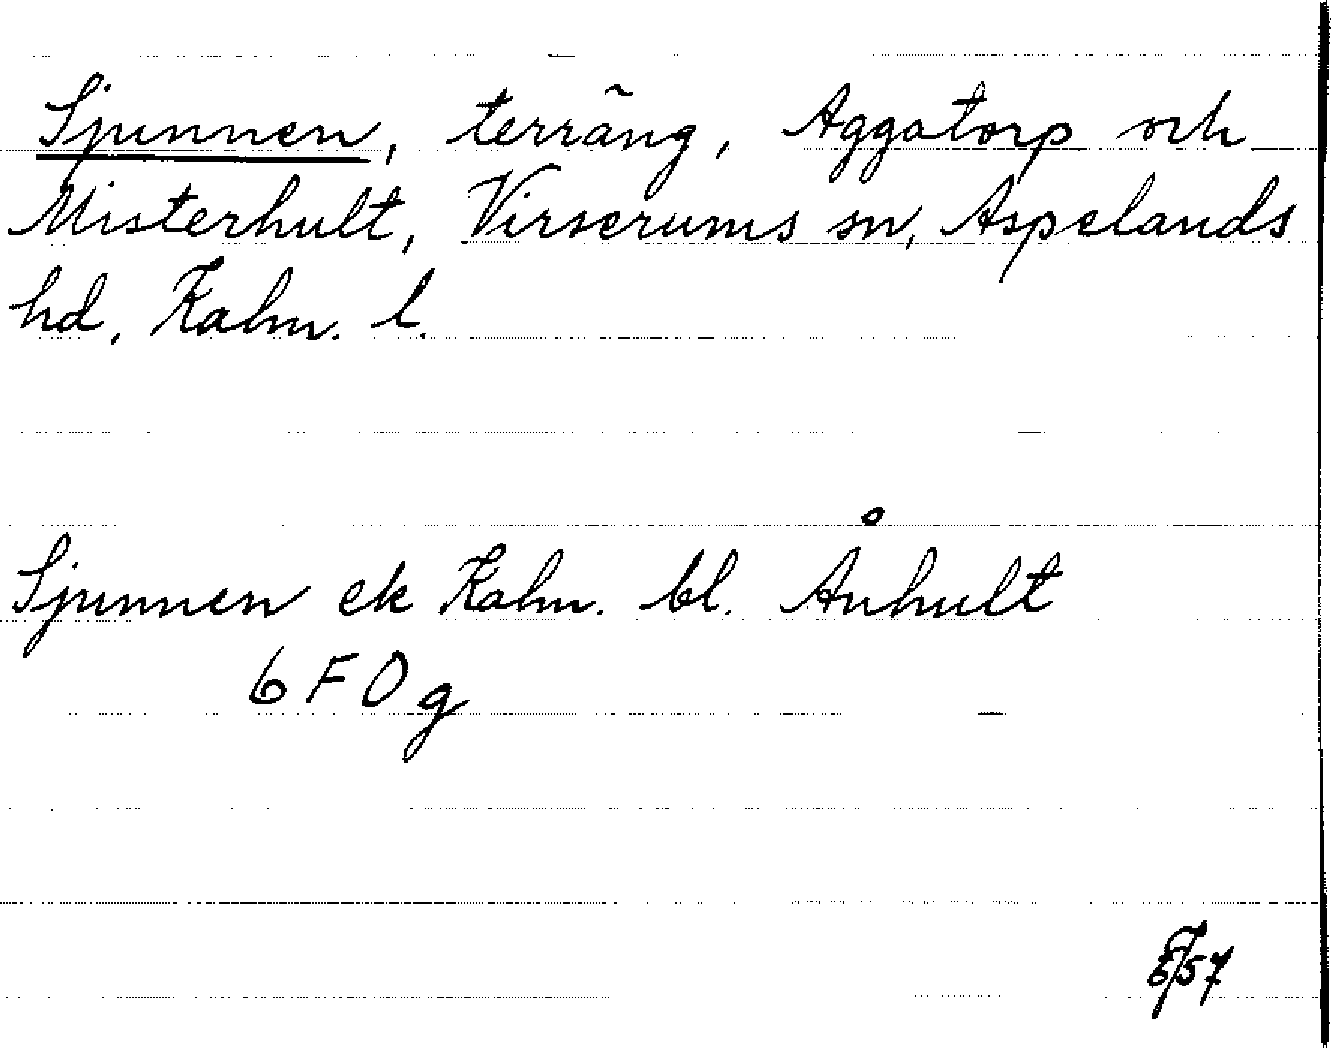 Sjunnen, terräng, Aggatorp och
Misterhult, Virserums sn, Aspelands
hd, Kalm. l.
Sjunnen ek Kalm. bl. Ånhult
6 F 0 g